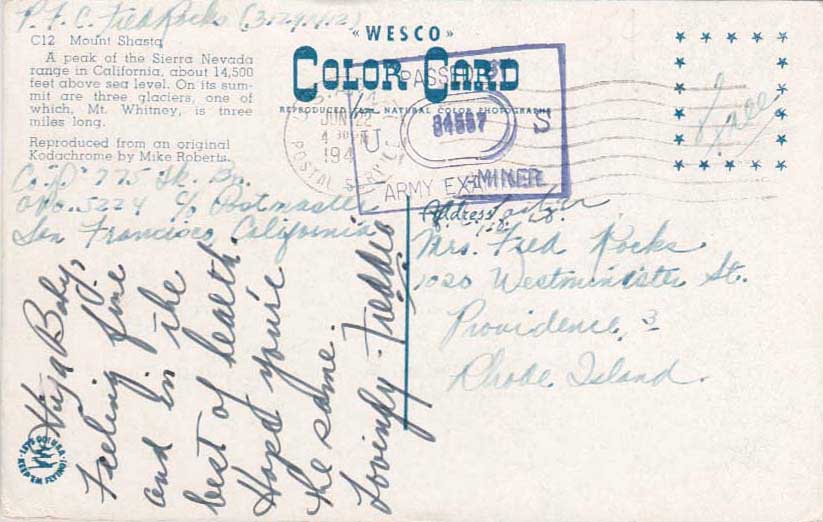 P.F.C. Fred Rocks
C12 Mount Shasta
A peak of the Sierra Nevada
range in California, about 14,500
feet above sea level. On its sum-
mit are three glaciers, one of
which, Mt. Whitney, is three
miles long.
Reproduced from an original
Kodachrome by Mike Roberts.
Co. "D" 775 Tk. Bn.
A.P.O. 5224 c/o Postmaster
San Francisco, California
« WESCO »
COLOR CARD
REPRODUCED FROM NATURAL COLOR PHOTOGRAPHS
PASSED
U S
34567
ARMY EXAMINER
JUN 22
4 30 PM
194
POSTAL SERVICE
Free
Address
Mrs. Fred Rocks
1020 Westminister St.
Providence, 3
Rhode Island.
Hiya Baby,
Feeling fine
and in the
best of health.
Hope you're
the same.
Lovingly - Freddie
LET'S GO! U.S.A.
KEEP 'EM FLYING!